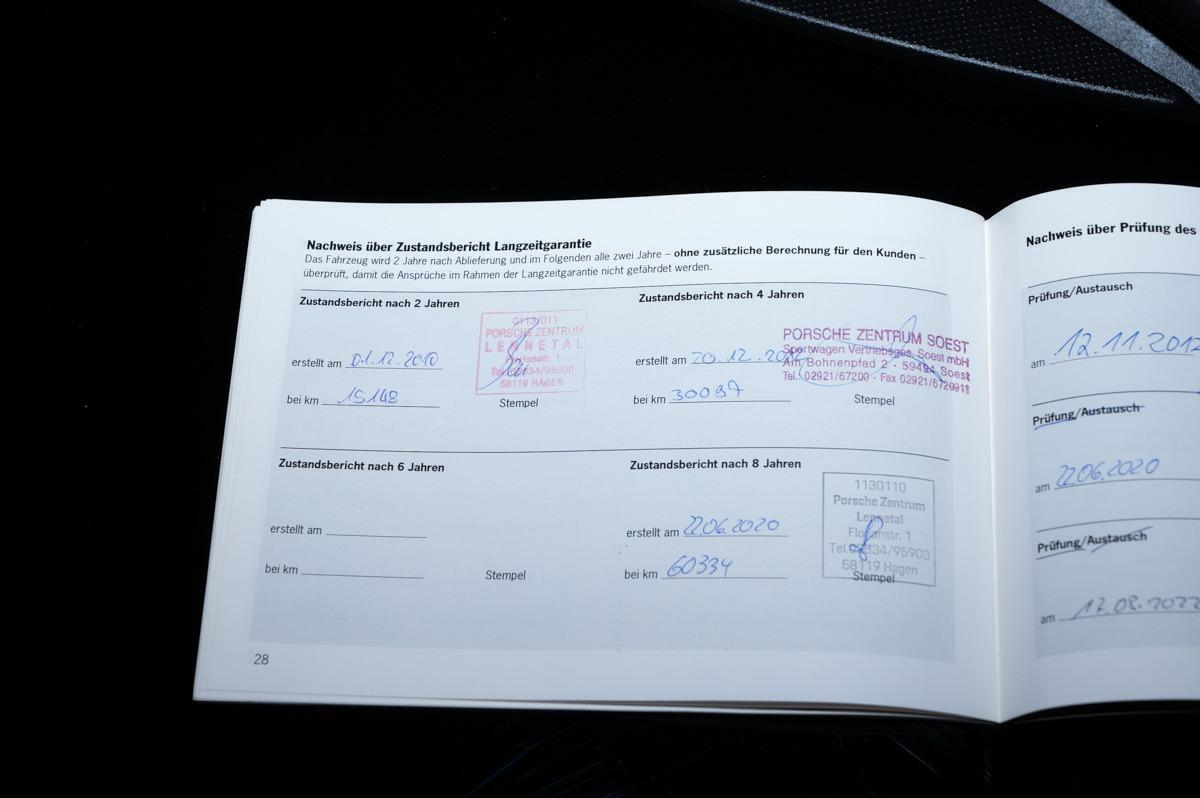 Nachweis über Zustandsbericht Langzeitgarantie
Das Fahrzeug wird 2 Jahre nach Ablieferung und im Folgenden alle zwei Jahre – ohne zusätzliche Berechnung für den Kunden –
überprüft, damit die Ansprüche im Rahmen der Langzeitgarantie nicht gefährdet werden.
Zustandsbericht nach 2 Jahren
0113/011
PORSCHE ZENTRUM
LENNETAL
58119 HAGEN
erstellt am 01.12.2010
bei km 15148
Stempel
Zustandsbericht nach 4 Jahren
PORSCHE ZENTRUM SOEST
Sportwagen Vertriebsges. Soest mbH
Am Bohnenpfad 2 · 59494 Soest
Tel. 02921/67200 · Fax 02921/6720911
erstellt am 20.12.
bei km 30097
Stempel
Zustandsbericht nach 6 Jahren
erstellt am
bei km
Stempel
Zustandsbericht nach 8 Jahren
1130110
Porsche Zentrum
Lennetal
Tel. 02334/95900
58119 Hagen
erstellt am 22.06.2020
bei km 60334
Stempel
28
Nachweis über Prüfung des
Prüfung/Austausch
am 12.11.2012
Prüfung/Austausch
am 22.06.2020
Prüfung/Austausch
am 17.08.2022